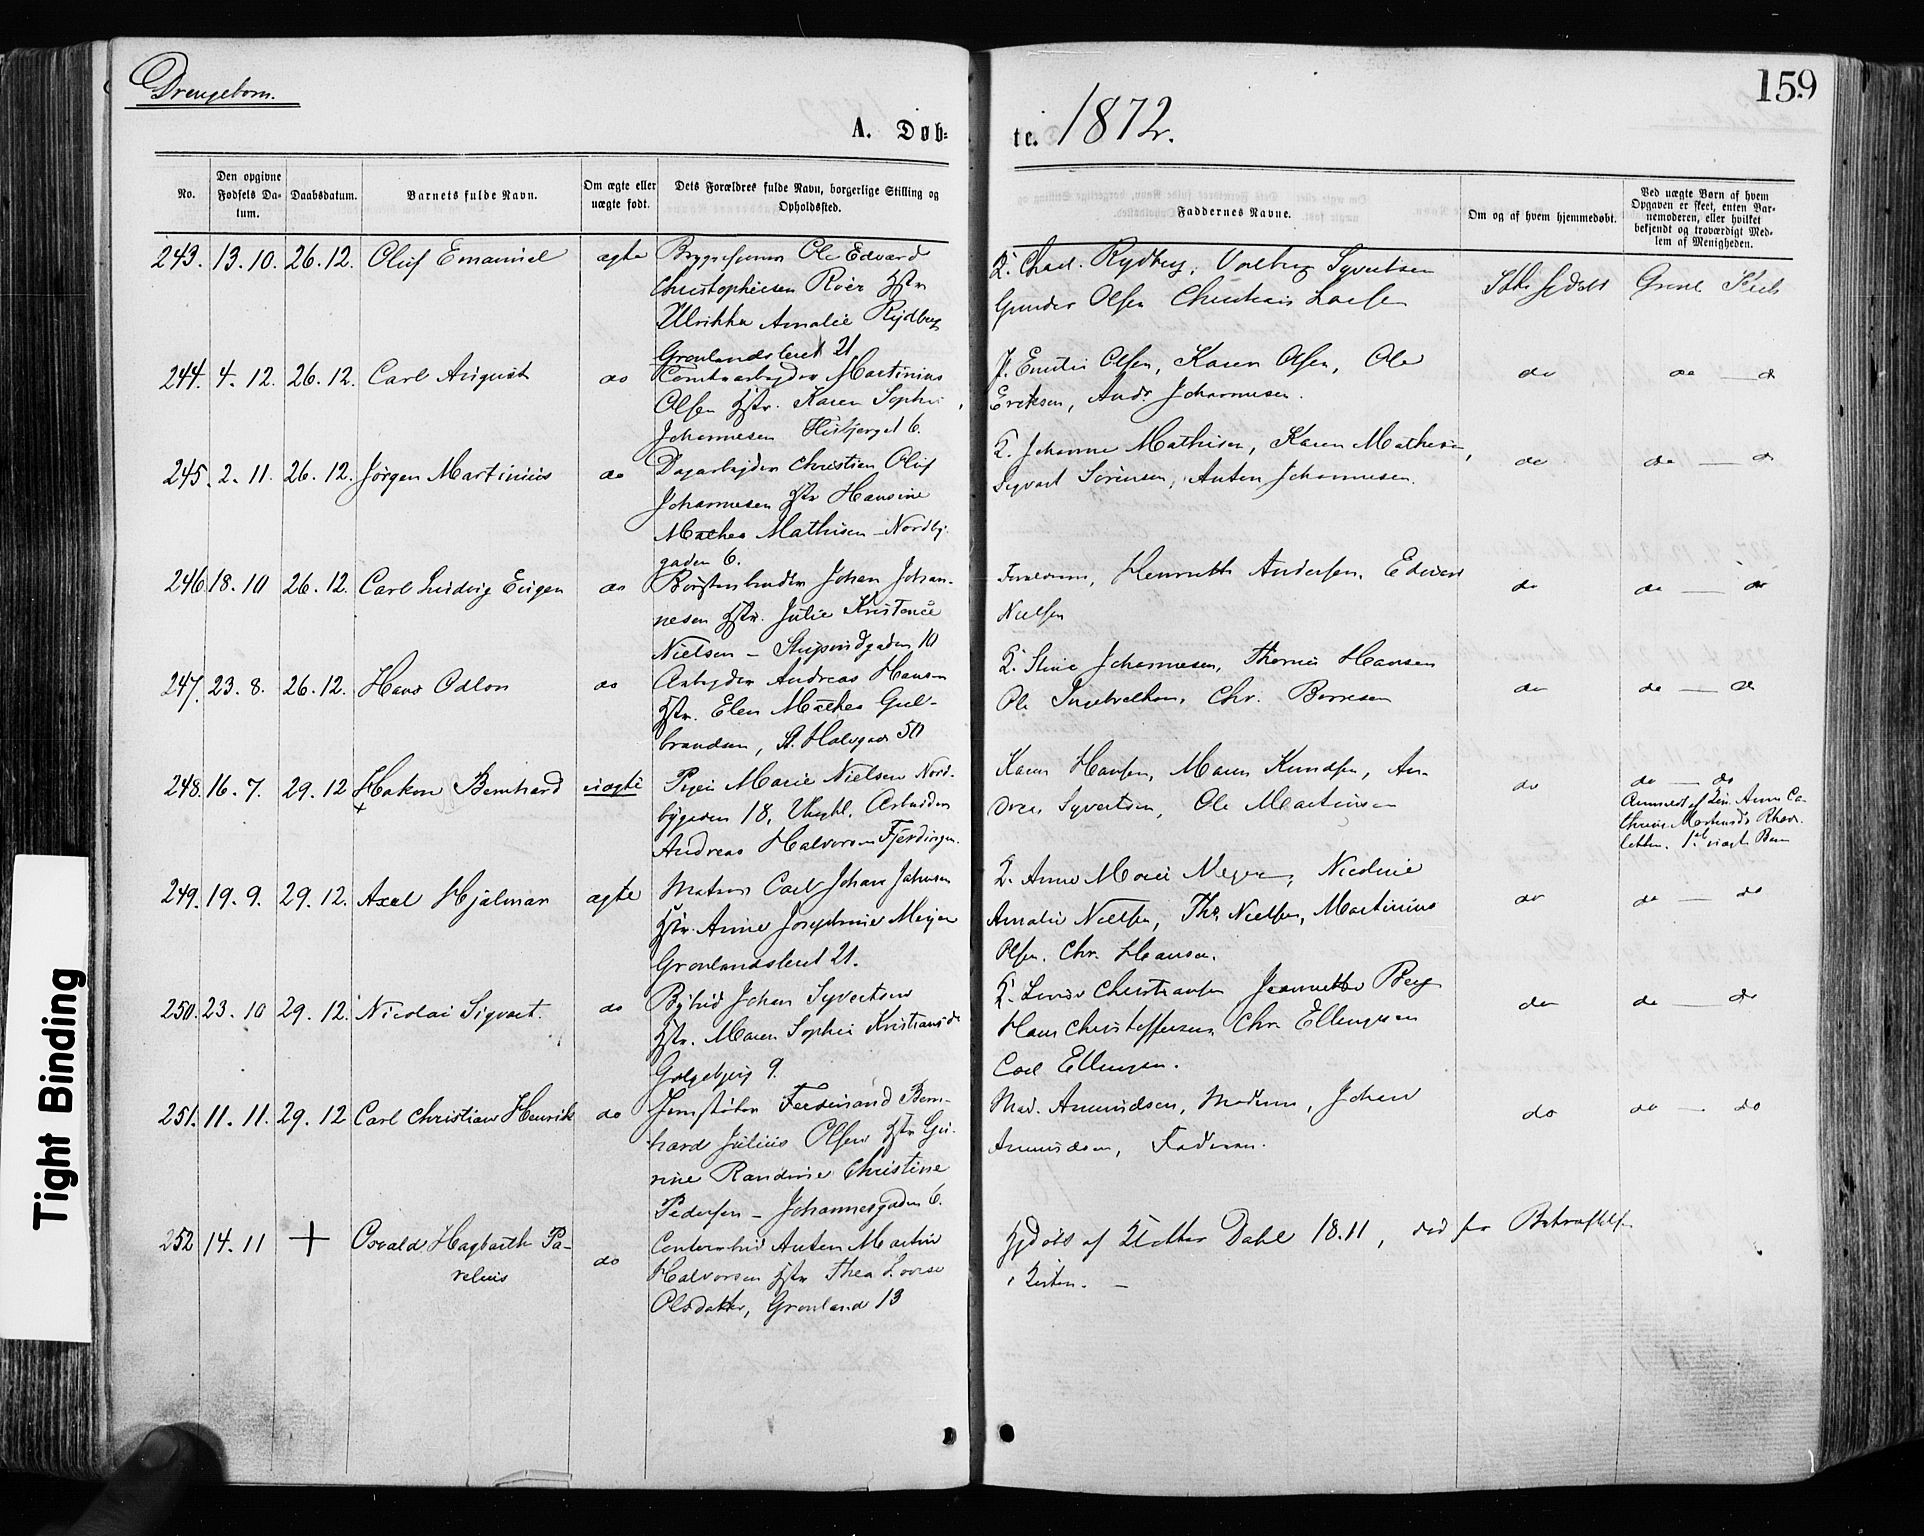 Drengebørn.
159
A. Døb=
te. 1872.
No.
Den opgivne
Fødsels Da-
tum.
Daabsdatum.
Barnets fulde Navn.
Om ægte eller
uægte født.
Dets Forældres fulde Navn, borgerlige Stilling og
Opholdssted.
Faddernes Navne.
Om og af hvem hjemmedøbt.
Ved uægte Børn af hvem
Opgaven er skeet, enten Bar-
nemoderen, eller hvilket
bekjendt og troværdigt Med-
lem af Menigheden.
243. 13.10. 26.12. Oluf Emanuel ægte
Ole Edvard
Christophersen Roër Hstr
Ulrikke Amalie Rydberg
Grønlandsleret 21
K. Charl. Rydberg, Valborg Syvertsen
Gunder Olsen Christian
Grønl Kirk
244. 4.12. 26.12. Carl August do
Tomtearbeyder Martinius
Olsen Hstr. Karen Sophie
Johannesen 6.
J. Emilie Olsen, Karen Olsen, Ole
Eriksen, Andr Johannesen.
do
do — do
245. 2.11. 26.12. Jörgen Martinius do
Dagarbeyder Christian Oluf
Johannesen Hstr Hansine
Mathea Mathisen – Nordby-
gaden 6.
K. Johanne Mathisen, Karen Mathisen,
Sigvart Sörensen, Anton Johannesen.
do
do — do
246 18.10 26.12. Carl Ludvig Eugen do
Börstenbinder Johan Johan-
nesen Hstr. Julie Kristence
Nielsen – Stupindgaden 10
Forældrene, Henriette Andersen, Edvard
Nielsen
do
do — do
247. 23.8. 26.12. Hans Odlon do
Arbeyder Andreas Hansen
Hstr. Elen Mathea Gul-
brandsen, St. Halvgade 50
K. Stine Johannesen, Thorine Hansen
Ole Ingebrethsen, Chr. Borresen
do
do — do
248. 16.7. 29.12 Hakon Bernhard uægte
Pigen Marie Nielsen Nord-
bygaden 18, Arbeider
Andreas Halvorsen Fjerdingen.
Karen Hansen, Maren Knudsen, An-
dreas Syvertsen, Ole Martinsen
do
do — do
Anmeldt af Anne Ca-
thrine
1ste uægte Barn
249. 19.9. 29.12. Axel Hjalmar ægte
Matros Carl Johan Johnsen
Hstr. Anne Josephine Meyer
Grønlandsleret 21.
K. Anne Marie Meyer, Nicoline
Amalie Nielsen, Ths Nielsen, Martinius
Olsen. Chr. Hansen.
do
do — do
250. 23.10 29.12. Nicolai Sigvart. do
Bybud Johan Syvertsen
Hstr. Maren Sophie Kristiansd
Galgebjerg 9.
K. Lovise Christiansen Jeannette Berg
Hans Christoffersen Chr. Ellingsen
Carl Ellingsen.
do
do — do
251. 11.11. 29.12 Carl Christian Henrik do
Jernstøber Ferdinand Bern-
hard Julius Olsen Hstr Gu-
rine Randine Christine
Pedersen – Johannesgaden 6.
Mad. Amundsen, Moderen, Johan
Amundsen, Faderen.
do
do — do
252 14.11 + Osvald Hagbarth Pa-
relius
do
Contorbud Anton Martin
Halvorsen Hstr Thea Lovise
Olsdatter, Grønland 13
Hjdøbt af Doktor Dahl 18.11, død før Bekræftelse
i Kirken. –
Tight Binding